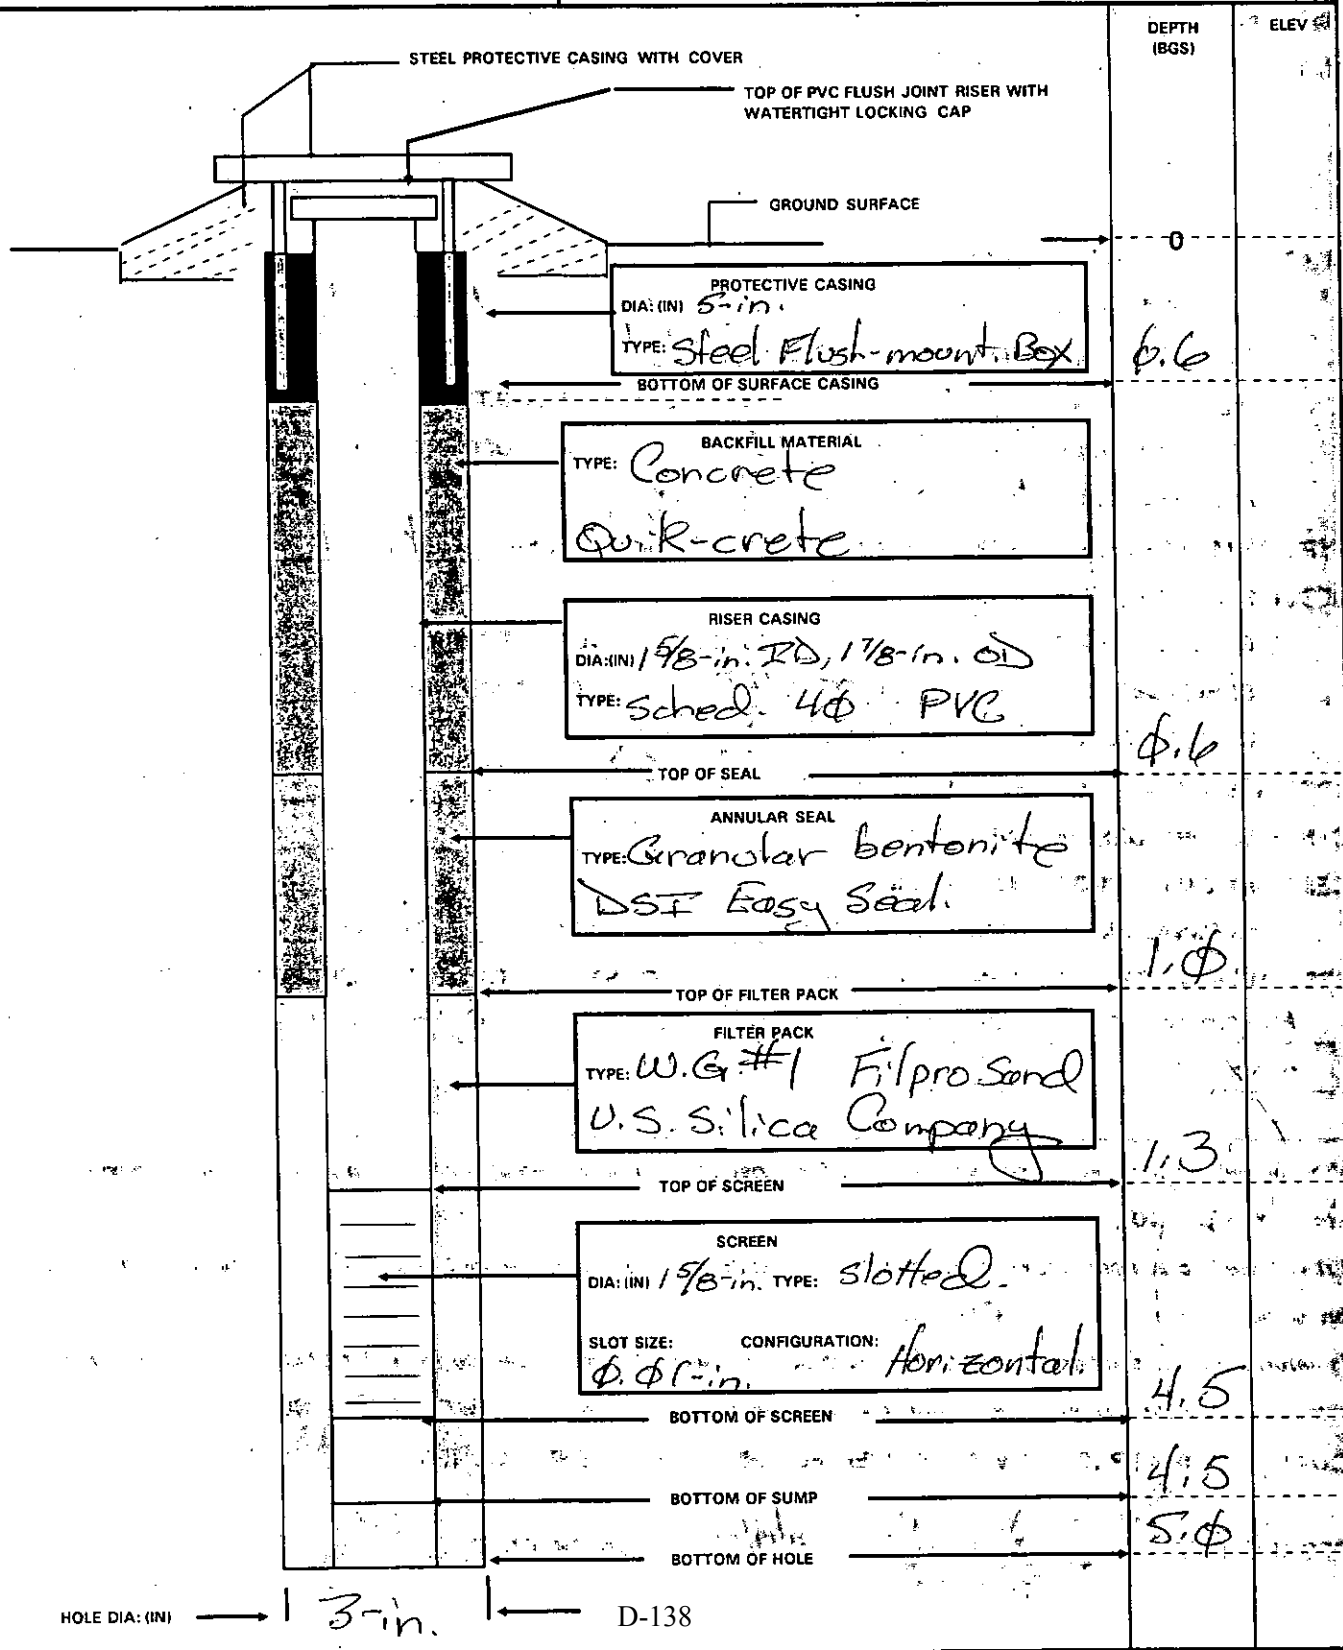 DEPTH
(BGS)
ELEV
STEEL PROTECTIVE CASING WITH COVER
TOP OF PVC FLUSH JOINT RISER WITH
WATERTIGHT LOCKING CAP
GROUND SURFACE
0
PROTECTIVE CASING
DIA: (IN) 5-in.
TYPE: Steel Flush-mount Box
0.6
BOTTOM OF SURFACE CASING
BACKFILL MATERIAL
TYPE: Concrete
Quik-crete
RISER CASING
DIA:(IN) 1 5/8-in. ID, 1 7/8-in. OD
TYPE: Sched. 40 PVC
0.6
TOP OF SEAL
ANNULAR SEAL
TYPE: Granular bentonite
DSI Easy Seal.
1.0
TOP OF FILTER PACK
FILTER PACK
TYPE: W.G. #1 Filpro Sand
U.S. Silica Company
1.3
TOP OF SCREEN
SCREEN
DIA: (IN) 1 5/8-in. TYPE: Slotted.
SLOT SIZE: CONFIGURATION:
0.01-in. Horizontal.
4.5
BOTTOM OF SCREEN
4.5
BOTTOM OF SUMP
5.0
BOTTOM OF HOLE
HOLE DIA: (IN) 3-in.
D-138